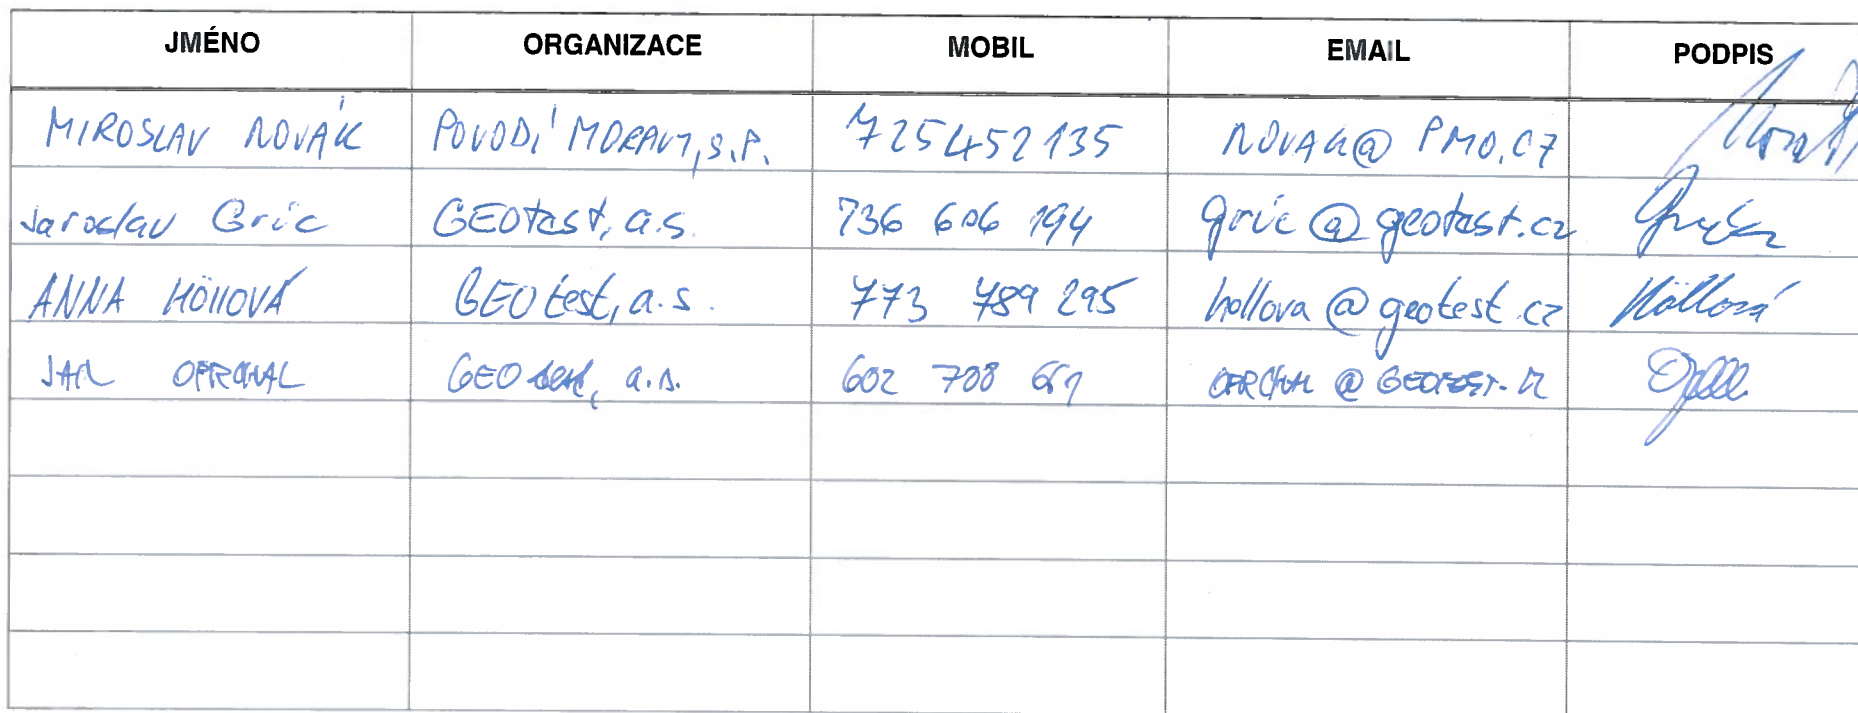 JMÉNO ORGANIZACE MOBIL EMAIL PODPIS
MIROSLAV NOVÁK POVODÍ MORAVY, S.P. 725452135 NOVAK@PMO.CZ
Jaroslav Gric GEOtest, a.s. 736 606 194 gric@geotest.cz
ANNA HÖLLOVÁ GEOtest, a.s. 773 789 295 hollova@geotest.cz Höllová
JAN OPRCHAL GEOtest, a.s. 602 708 OPRCHAL@GEOTEST.CZ